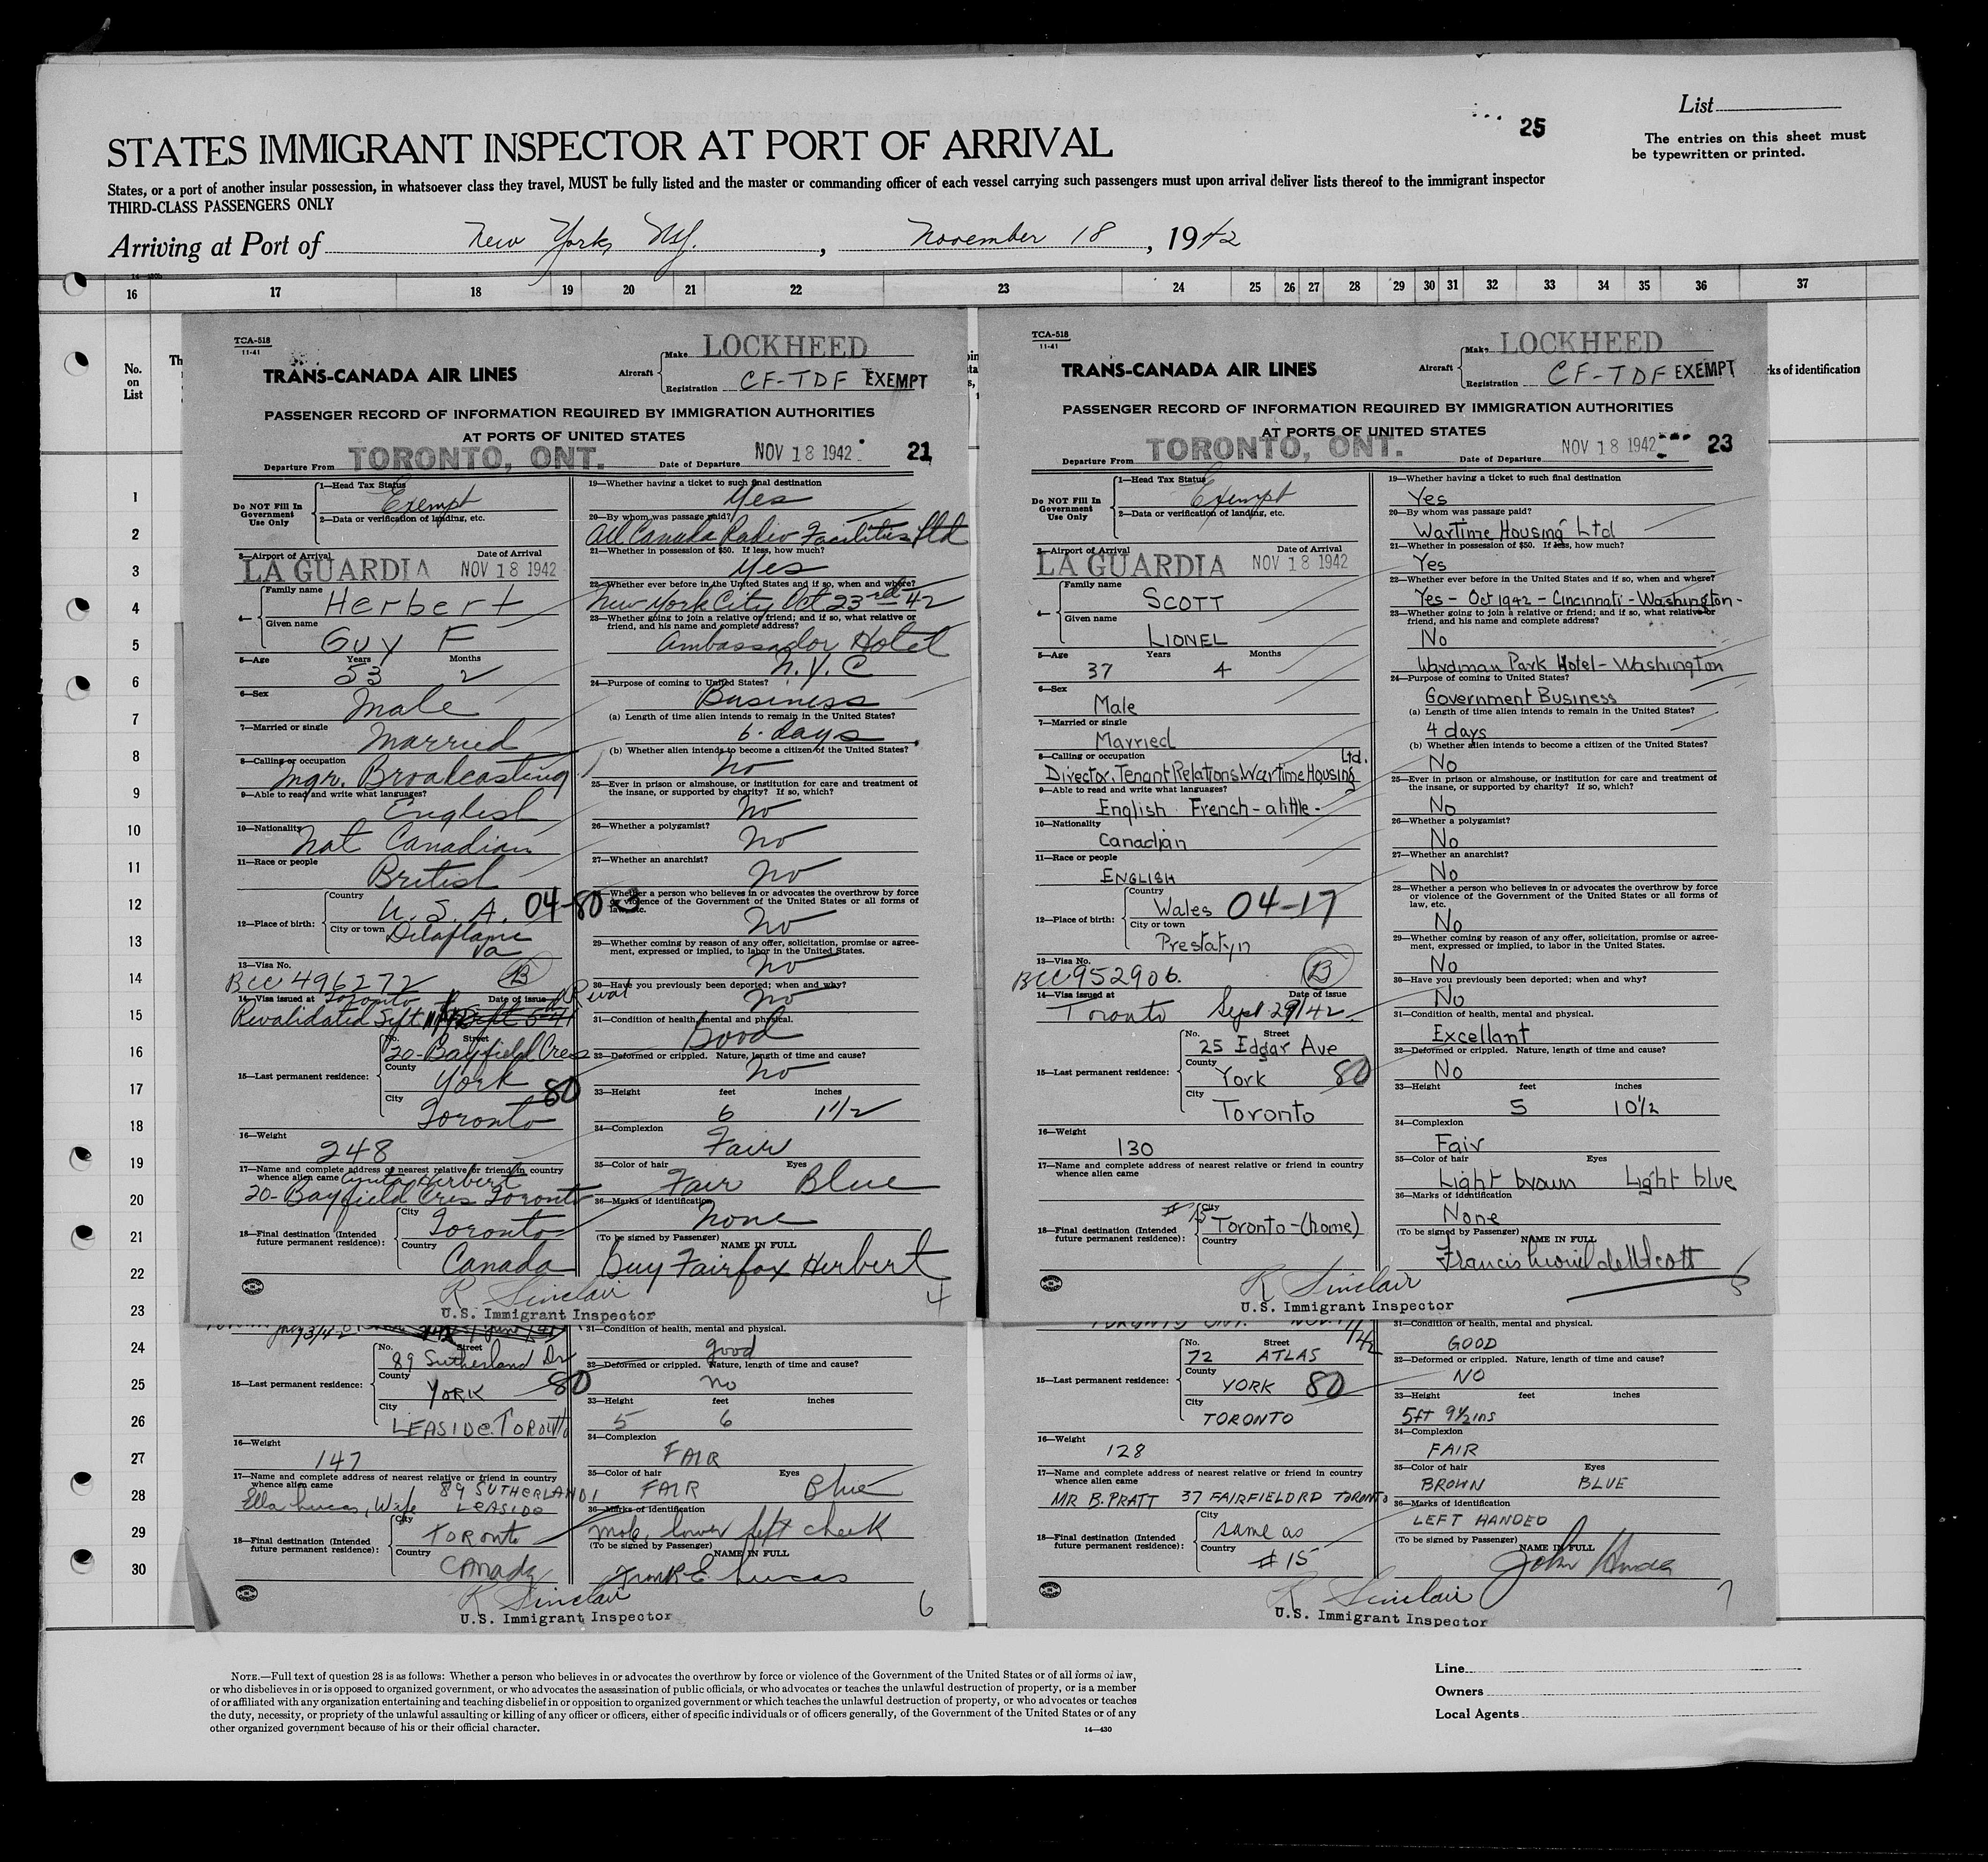 List
25
The entries on this sheet must
be typewritten or printed.
STATES IMMIGRANT INSPECTOR AT PORT OF ARRIVAL
States, or a port of another insular possession, in whatsoever class they travel, MUST be fully listed and the master or commanding officer of each vessel carrying such passengers must upon arrival deliver lists thereof to the immigrant inspector
THIRD-CLASS PASSENGERS ONLY
Arriving at Port of New York, N.Y., November 18, 1942
16 17 18 19 20 21 22 23 24 25 26 27 28 29 30 31 32 33 34 35 36 37
No.
on
List
ks of identification
1
2
3
4
5
6
7
8
9
10
11
12
13
14
15
16
17
18
19
20
21
22
23
24
25
26
27
28
29
30
TCA-518
11-41
TRANS-CANADA AIR LINES
Aircraft
Make LOCKHEED
Registration CF-TDF EXEMPT
PASSENGER RECORD OF INFORMATION REQUIRED BY IMMIGRATION AUTHORITIES
AT PORTS OF UNITED STATES
Departure From TORONTO, ONT. Date of Departure NOV 18 1942 21
Do NOT Fill In
Government
Use Only
1—Head Tax Status
Exempt
2—Data or verification of landing, etc.
3—Airport of Arrival Date of Arrival
LA GUARDIA NOV 18 1942
4—
Family name
Herbert
Given name
Guy F
5—Age Years Months
53 2
6—Sex
Male
7—Married or single
Married
8—Calling or occupation
Mgr. Broadcasting
9—Able to read and write what languages?
English
10—Nationality
Nat Canadian
11—Race or people
British
12—Place of birth:
Country
U.S.A. 04-80-3
City or town
Delaplane
Va
13—Visa No.
BCC 496272 B
14—Visa issued at Toronto Date of issue
Revalidated Sept
15—Last permanent residence:
No. Street
20-Bayfield Cres
County
York 80
City
Toronto
16—Weight
248
17—Name and complete address of nearest relative or friend in country
whence alien came Anita Herbert
20-Bayfield Cres Toronto
18—Final destination (Intended
future permanent residence):
City
Toronto
Country
Canada
19—Whether having a ticket to such final destination
Yes
20—By whom was passage paid?
All Canada Radio Facilities Ltd
21—Whether in possession of $50. If less, how much?
Yes
22—Whether ever before in the United States and if so, when and where?
New York City Oct 23rd-42
23—Whether going to join a relative or friend; and if so, what relative or
friend, and his name and complete address?
Ambassador Hotel
N.Y.C
24—Purpose of coming to United States?
Business
(a) Length of time alien intends to remain in the United States?
6-days
(b) Whether alien intends to become a citizen of the United States?
No
25—Ever in prison or almshouse, or institution for care and treatment of
the insane, or supported by charity? If so, which?
No
26—Whether a polygamist?
No
27—Whether an anarchist?
No
Whether a person who believes in or advocates the overthrow by force
or violence of the Government of the United States or all forms of
law, etc.
No
29—Whether coming by reason of any offer, solicitation, promise or agree-
ment, expressed or implied, to labor in the United States.
No
30—Have you previously been deported; when and why?
No
31—Condition of health, mental and physical.
Good
32—Deformed or crippled. Nature, length of time and cause?
No
33—Height feet inches
6 1 1/2
34—Complexion
Fair
35—Color of hair Eyes
Fair Blue
36—Marks of identification
None
(To be signed by Passenger) NAME IN FULL
Guy Fairfax Herbert
R Sinclair
U.S. Immigrant Inspector
4
TCA-518
11-41
TRANS-CANADA AIR LINES
Aircraft
Make LOCKHEED
Registration CF-TDF EXEMPT
PASSENGER RECORD OF INFORMATION REQUIRED BY IMMIGRATION AUTHORITIES
AT PORTS OF UNITED STATES
Departure From TORONTO, ONT. Date of Departure NOV 18 1942 23
Do NOT Fill In
Government
Use Only
1—Head Tax Status
Exempt
2—Data or verification of landing, etc.
3—Airport of Arrival Date of Arrival
LA GUARDIA NOV 18 1942
4—
Family name
SCOTT
Given name
LIONEL
5—Age Years Months
37 4
6—Sex
Male
7—Married or single
Married
8—Calling or occupation
Director, Tenant Relations, Wartime Housing Ltd.
9—Able to read and write what languages?
English French-a little-
10—Nationality
Canadian
11—Race or people
ENGLISH
12—Place of birth:
Country
Wales 04-17
City or town
Prestatyn
13—Visa No.
BCC 952906. B
14—Visa issued at Date of issue
Toronto Sept 29/42
15—Last permanent residence:
No. Street
25 Edgar Ave
County
York 80
City
Toronto
16—Weight
130
17—Name and complete address of nearest relative or friend in country
whence alien came
# 15
18—Final destination (Intended
future permanent residence):
City
Toronto-(home)
Country
19—Whether having a ticket to such final destination
Yes
20—By whom was passage paid?
Wartime Housing Ltd
21—Whether in possession of $50. If less, how much?
Yes
22—Whether ever before in the United States and if so, when and where?
Yes - Oct 1942 - Cincinnati - Washington -
23—Whether going to join a relative or friend; and if so, what relative or
friend, and his name and complete address?
No
Wardman Park Hotel - Washington
24—Purpose of coming to United States?
Government Business
(a) Length of time alien intends to remain in the United States?
4 days
(b) Whether alien intends to become a citizen of the United States?
No
25—Ever in prison or almshouse, or institution for care and treatment of
the insane, or supported by charity? If so, which?
No
26—Whether a polygamist?
No
27—Whether an anarchist?
No
28—Whether a person who believes in or advocates the overthrow by force
or violence of the Government of the United States or all forms of
law, etc.
No
29—Whether coming by reason of any offer, solicitation, promise or agree-
ment, expressed or implied, to labor in the United States.
No
30—Have you previously been deported; when and why?
No
31—Condition of health, mental and physical.
Excellant
32—Deformed or crippled. Nature, length of time and cause?
No
33—Height feet inches
5 10 1/2
34—Complexion
Fair
35—Color of hair Eyes
Light brown Light blue
36—Marks of identification
None
(To be signed by Passenger) NAME IN FULL
Francis Lionel Scott
R Sinclair
U.S. Immigrant Inspector
5
15—Last permanent residence:
No. Street
89 Sutherland Dr
County
YORK 80
City
LEASIDE. TORONTO
16—Weight
147
17—Name and complete address of nearest relative or friend in country
whence alien came 89 SUTHERLAND
Ella Lucas, Wife LEASIDE
18—Final destination (Intended
future permanent residence):
City
TORONTO
Country
CANADA
31—Condition of health, mental and physical.
good
32—Deformed or crippled. Nature, length of time and cause?
no
33—Height feet inches
5 6
34—Complexion
FAIR
35—Color of hair Eyes
FAIR Blue
36—Marks of identification
mole, lower left cheek
(To be signed by Passenger) NAME IN FULL
Frank E. Lucas
R Sinclair
U.S. Immigrant Inspector
6
15—Last permanent residence:
No. Street
72 ATLAS
County
YORK 80
City
TORONTO
16—Weight
128
17—Name and complete address of nearest relative or friend in country
whence alien came
MR B. PRATT 37 FAIRFIELD RD TORONTO
18—Final destination (Intended
future permanent residence):
City
same as
Country
# 15
31—Condition of health, mental and physical.
GOOD
32—Deformed or crippled. Nature, length of time and cause?
NO
33—Height feet inches
5ft 9 1/2 ins
34—Complexion
FAIR
35—Color of hair Eyes
BROWN BLUE
36—Marks of identification
LEFT HANDED
(To be signed by Passenger) NAME IN FULL
John
R Sinclair
U.S. Immigrant Inspector
7
NOTE.—Full text of question 28 is as follows: Whether a person who believes in or advocates the overthrow by force or violence of the Government of the United States or of all forms of law,
or who disbelieves in or is opposed to organized government, or who advocates the assassination of public officials, or who advocates or teaches the unlawful destruction of property, or is a member
of or affiliated with any organization entertaining and teaching disbelief in or opposition to organized government or which teaches the unlawful destruction of property, or who advocates or teaches
the duty, necessity, or propriety of the unlawful assaulting or killing of any officer or officers, either of specific individuals or of officers generally, of the Government of the United States or of any
other organized government because of his or their official character.
14—430
Line
Owners
Local Agents